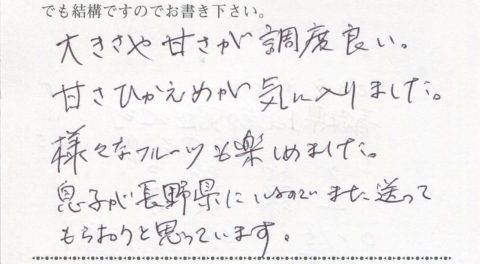 でも結構ですのでお書き下さい。
大きさや甘さが調度良い。
甘さひかえめが気に入りました。
様々なフルーツも楽しめました。
息子が長野県にいるのでまた送って
もらおうと思っています。